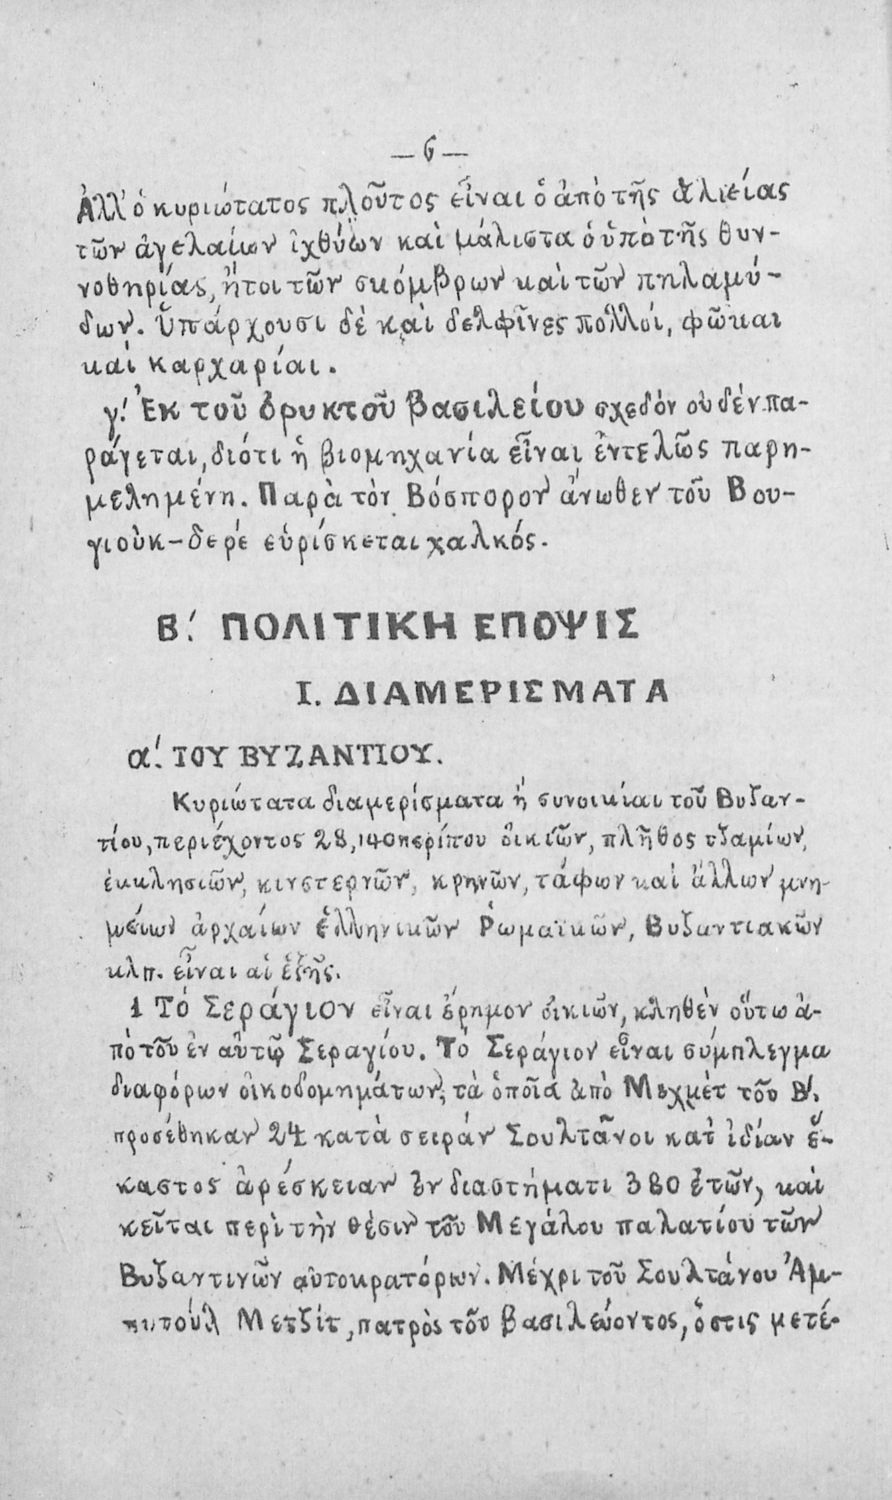 —6—
Ἀλλ' ὁ κυριώτατος πλοῦτος εἶναι ὁ ἀπὸ τῆς ἁλιείας
τῶν ἀγελαίων ἰχθύων καὶ μάλιστα ὁ ὑπὸ τῆς θυν-
νοθηρίας, ἤτοι τῶν σκόμβρων καὶ τῶν πηλαμύ-
δων. Ὑπάρχουσι δὲ καὶ δελφῖνες πολλοί, φῶκαι
καὶ καρχαρίαι.
γ'. Ἐκ τοῦ ὀρυκτοῦ βασιλείου σχεδὸν οὐδὲν πα-
ράγεται, διότι ἡ βιομηχανία εἶναι ἐντελῶς παρη-
μελημένη. Παρὰ τὸν Βόσπορον ἄνωθεν τοῦ Βου-
γιοὺκ-δερὲ εὑρίσκεται χαλκός.
Β'. ΠΟΛΙΤΙΚΗ ΕΠΟΨΙΣ
Ι. ΔΙΑΜΕΡΙΣΜΑΤΑ
α'. ΤΟΥ ΒΥΖΑΝΤΙΟΥ.
Κυριώτατα διαμερίσματα ἢ συνοικίαι τοῦ Βυζαν-
τίου, περιέχοντος 28,140 περίπου οἰκιῶν, πλῆθος τζαμίων,
ἐκκλησιῶν, κινστερνῶν, κρηνῶν, τάφων καὶ ἄλλων μνη-
μείων ἀρχαίων ἑλληνικῶν Ῥωμαϊκῶν, Βυζαντιακῶν
κλπ. εἶναι αἱ ἑξῆς.
1 Τὸ Σεράγιον εἶναι ἔρημον οἰκιῶν, κληθὲν οὕτω ἀ-
πὸ τοῦ ἐν αὐτῷ Σεραγίου. Τὸ Σεράγιον εἶναι σύμπλεγμα
διαφόρων οἰκοδομημάτων, τὰ ὁποῖα ἀπὸ Μεχμὲτ τοῦ Β'.
προσέθηκαν 24 κατὰ σειρὰν Σουλτᾶνοι κατ' ἰδίαν ἕ-
καστος ἀρέσκειαν ἐν διαστήματι 380 ἐτῶν, καὶ
κεῖται περὶ τὴν θέσιν τοῦ Μεγάλου παλατίου τῶν
Βυζαντινῶν αὐτοκρατόρων. Μέχρι τοῦ Σουλτάνου Ἀμ-
πιτοὺλ Μετζίτ, πατρὸς τοῦ βασιλεύοντος, ὅστις μετέ-